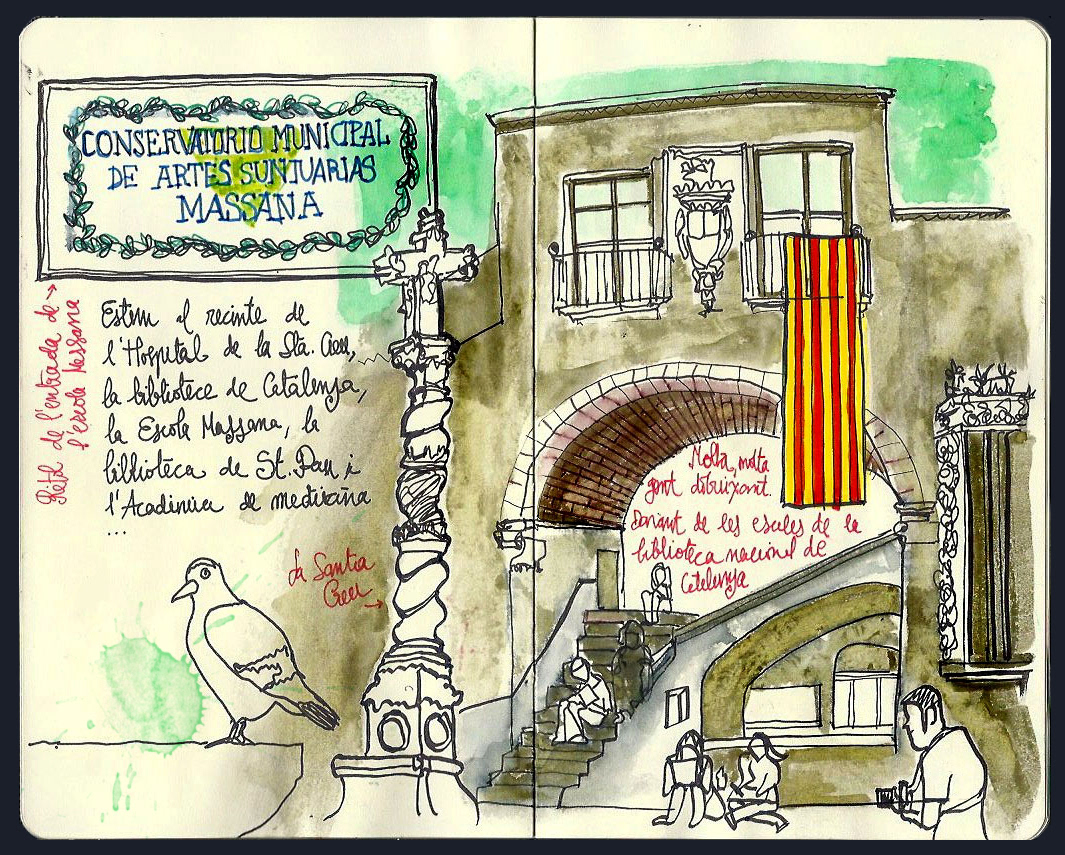 CONSERVATORIO MUNICIPAL
DE ARTES SUNTUARIAS
MASSANA
Rètol de l'entrada de →
l'escola Massana
Estem al recinte de
l'Hospital de la Sta. Creu,
la biblioteca de Catalunya,
la Escola Massana, la
biblioteca de St. Pau i
l'Acadèmia de medicina
...
La Santa
Creu →
Molta, molta
gent dibuixant.
Davant de les escales de la
biblioteca nacional de
Catalunya